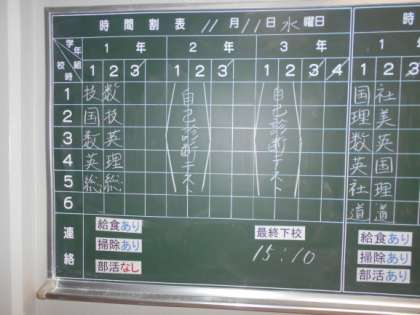 時間割表 11月11日水曜日
学年組 1年 2年 3年
校時 1 2 3 1 2 3 1 2 3 4 1 2
1 技 数 国 社
2 国 技 理 美
3 数 英 数 英
4 英 理 英 国
5 総 総 社 理
6 道 道
自己診断テスト
自己診断テスト
連絡
給食あり
掃除あり
部活なし
最終下校
15:10
給食あり
掃除あり
部活あり
時